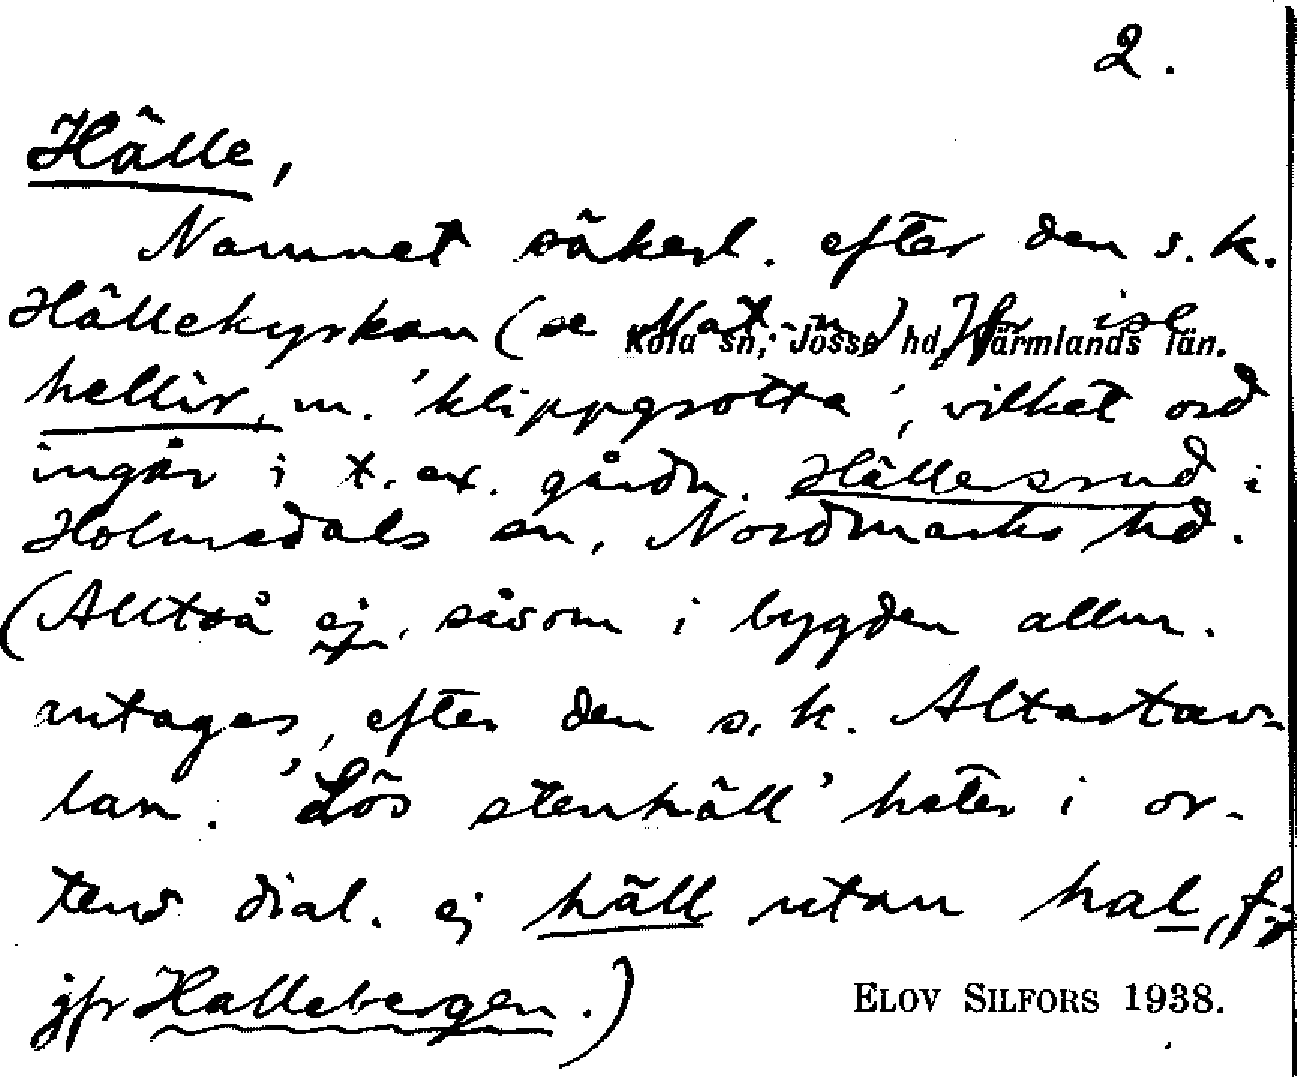 2.
Hälle,
Namnet säkerl. efter den s. k.
Hällekyrkan (se Nat. n.) Jfr isl.
Köla sn, Jösse hd, Värmlands län.
hellir, m. 'klippgrotta', vilket ord
ingår i t. ex. gårdn. Hällersrud i
Holmedals sn, Nordmarks hd.
(Alltså ej, såsom i bygden allm.
antages, efter den s. k. Altartav-
lan. 'Lös stenhäll' heter i or-
tens dial. ej häll utan hal, f.;
jfr Hallebergen.)
ELOV SILFORS 1938.